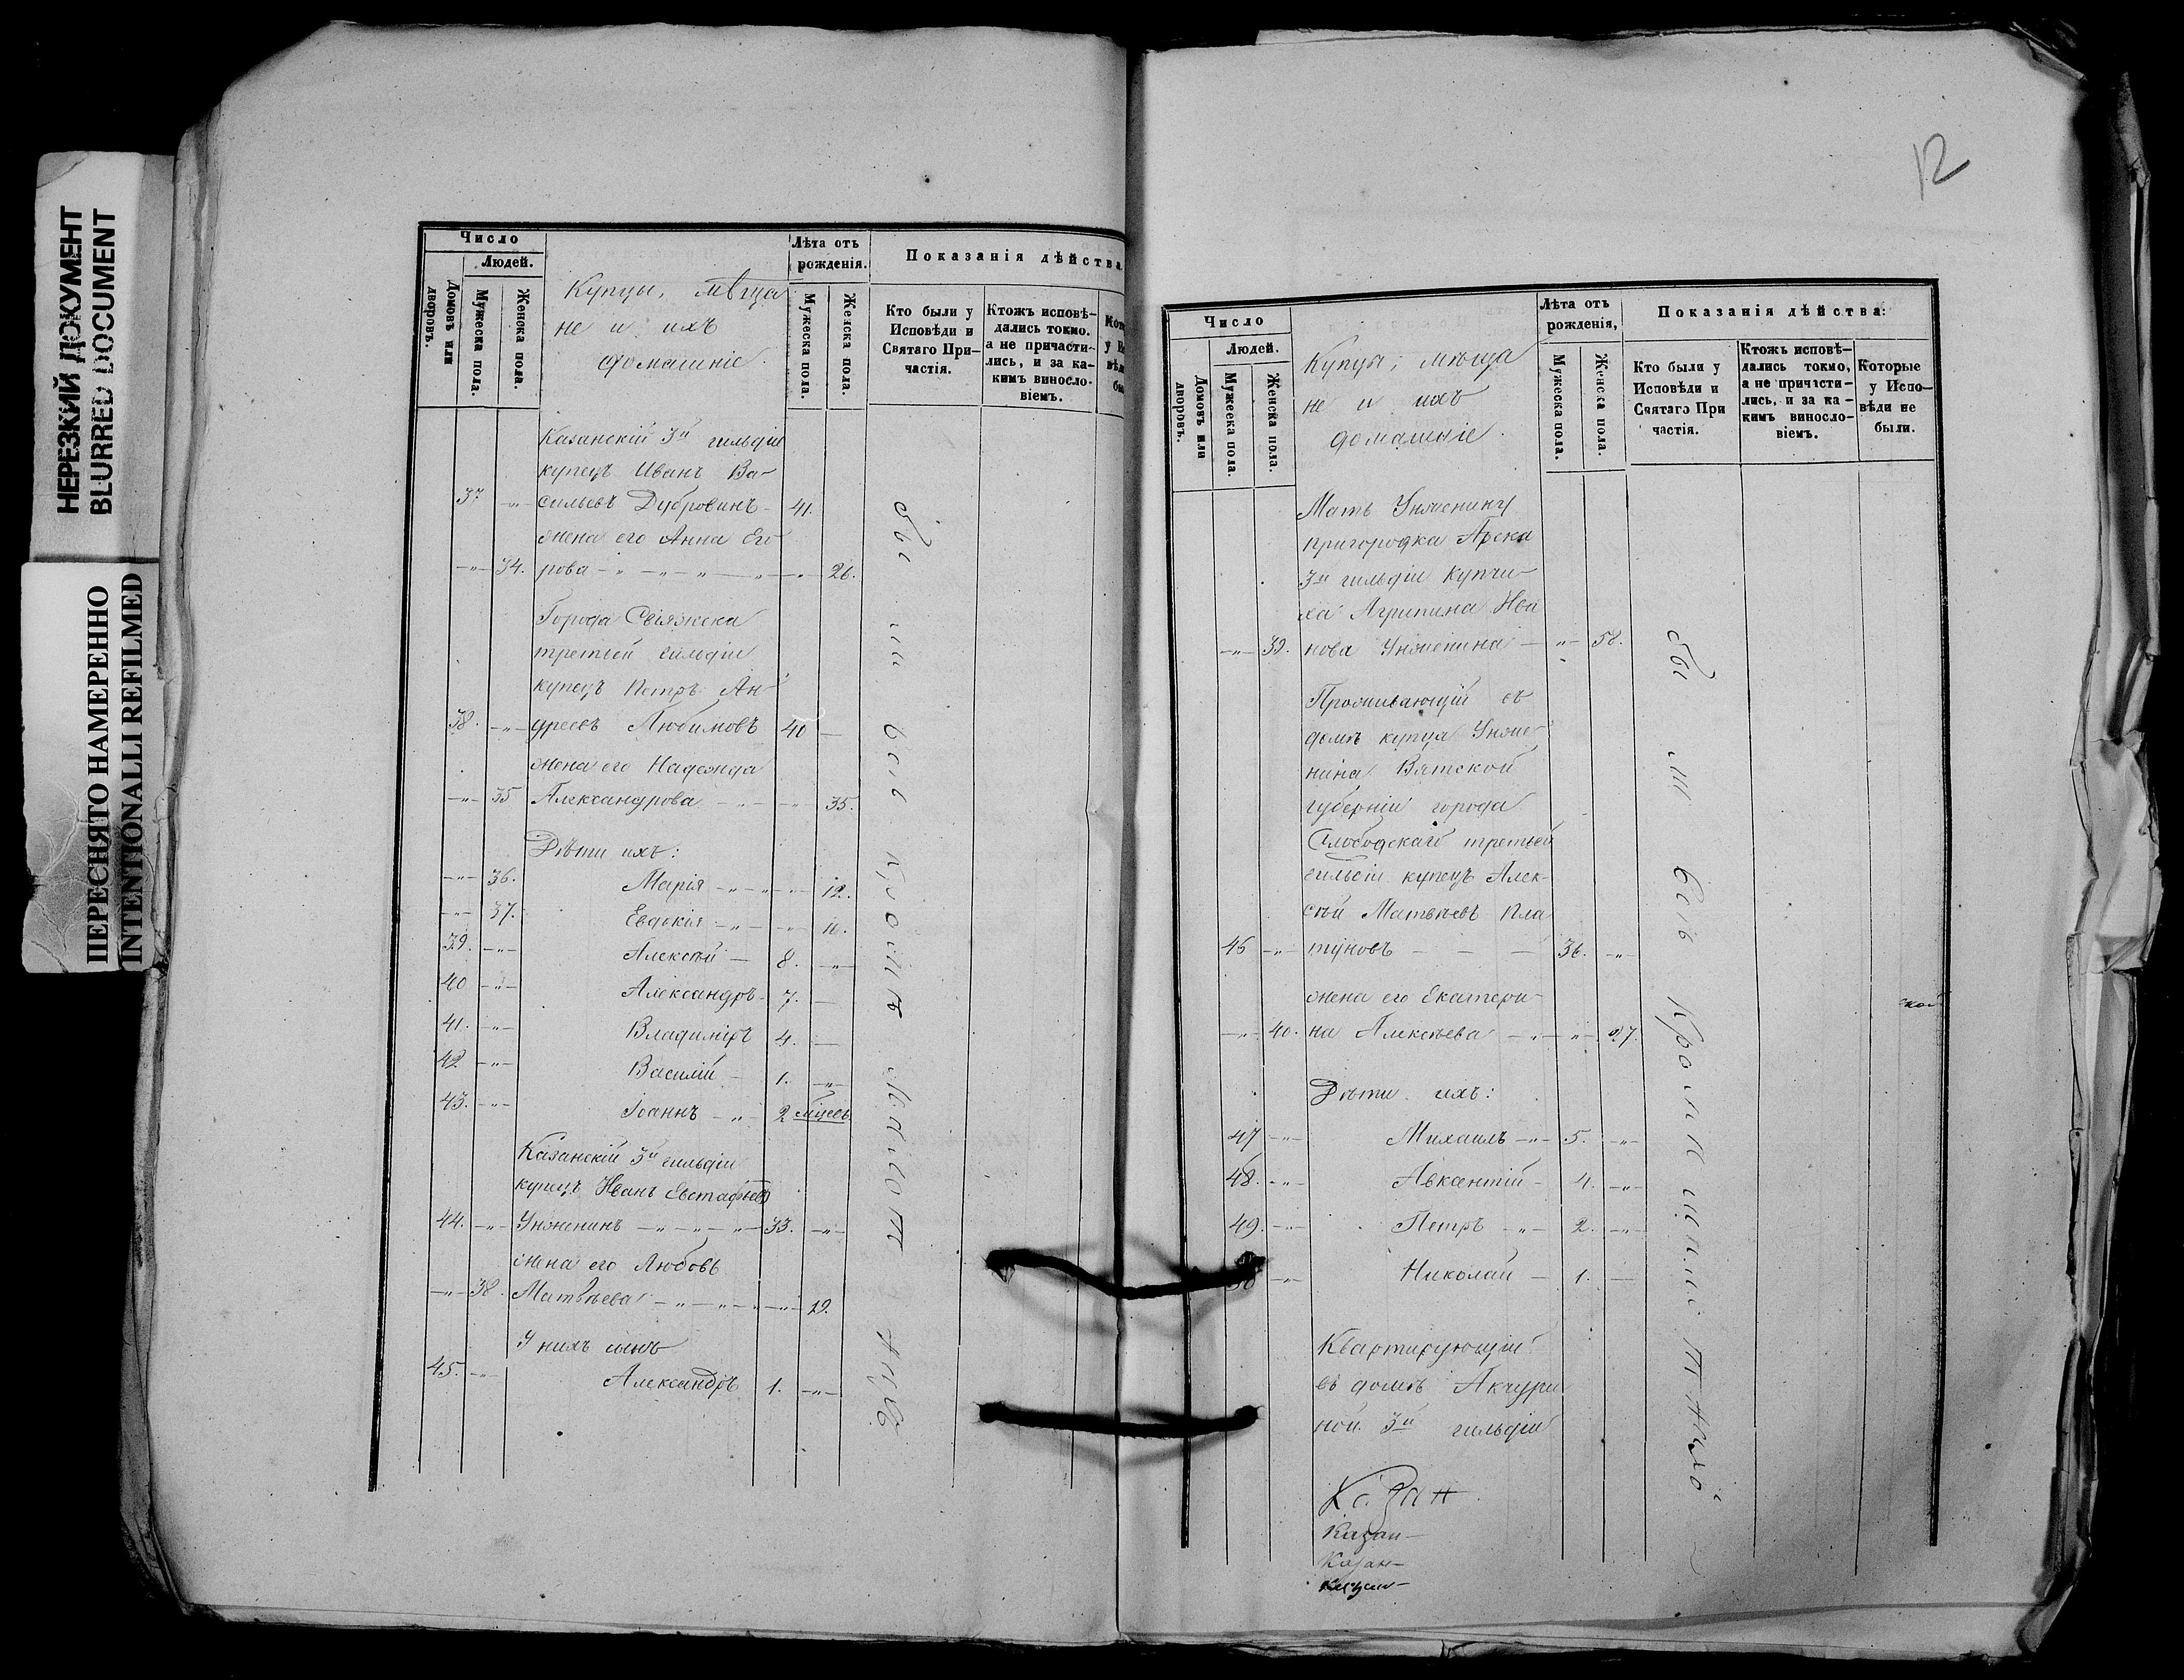 НЕРЕЗКИЙ ДОКУМЕНТ
BLURRED DOCUMENT
ПЕРЕСНЯТО НАМЕРЕННО
INTENTIONALLI REFILMED
Число
Людей.
Домовъ или дворовъ.
Мужеска пола.
Женска пола.
Купцы, мѣща
не и ихъ
домашніе.
Лѣта отъ
рожденія.
Мужеска пола.
Женска пола.
Показанія дѣйства
Кто были у
Исповѣди и
Святаго При-
частія.
Ктожъ исповѣ-
дались токмо.
а не причасти-
лись, и за ка-
кимъ винносло-
віемъ.
Казанскій 3й гильдіи
купецъ Иванъ Ва-
37 -"- сильевъ Дубровинъ - 41.
жена его Анна Его
-"- 34. рова -"-"-"-"- 26.
Города Свіяжска
третьей гильдіи
купецъ Петръ Ан-
38. -"- дреевъ Любимовъ 40 -
жена его Надежда
-"- 35 Александрова -"- 35.
Дѣти ихъ:
-"- 36. Марія -"-"- 12.
-"- 37. Евдокія -"-"-
39. -"- Алексѣй - 8. -"-
40 -"- Александръ - 7. -
41. -"- Владиміръ 4. -
42 -"- Василій - 1. -"-
43. -"- Іоаннъ -"- 2 мѣсев.
Казанскій 3й гильдіи
купецъ Иванъ Евстафьевъ
44. -"- Унженинъ -"-"-"- 33. -"-
жена его Любовь
-"- 38. Матвѣева -"-"-"-
У нихъ сынъ
45. -"- Александръ 1. -"-
были
всѣ
12
Число
Людей.
Домовъ или дворовъ.
Мужеска пола.
Женска пола.
Купцы, мѣща
не и ихъ
домашніе.
Лѣта отъ
рожденія,
Мужеска пола.
Женска пола.
Показанія дѣйства:
Кто были у
Исповѣди и
Святаго При
частія.
Ктожъ исповѣ-
дались токмо,
а не причасти-
лись, и за ка-
кимъ винносло-
віемъ.
Которые
у Испо-
вѣди не
были.
Мать Унженину
пригородка Арска
3й гильдіи купчи-
ха Агрипина Ива
-"- 39. нова Унженина - -"- 58.
Проживающій въ
домѣ купца Унже-
нина Вятской
губерніи города
Слободскаго третьей
гильдіи купецъ Алек-
сѣй Матвѣевъ Пла
46 -"- туновъ - - - 36. -"-
жена его Екатери-
-"- 40. на Алексѣева -"-"- 27.
Дѣти ихъ:
47 -"- Михаилъ -"- 5. -"-
48. -"- Авксентій - 4. -"-
49. -"- Петръ -"- 2. -"-
50 -"- Николай - 1. -
Квартирующій
въ домѣ Акчури
ной 3й гильдіи
Казан
Казан-
Казан-
Казан-
были
всѣ
ской